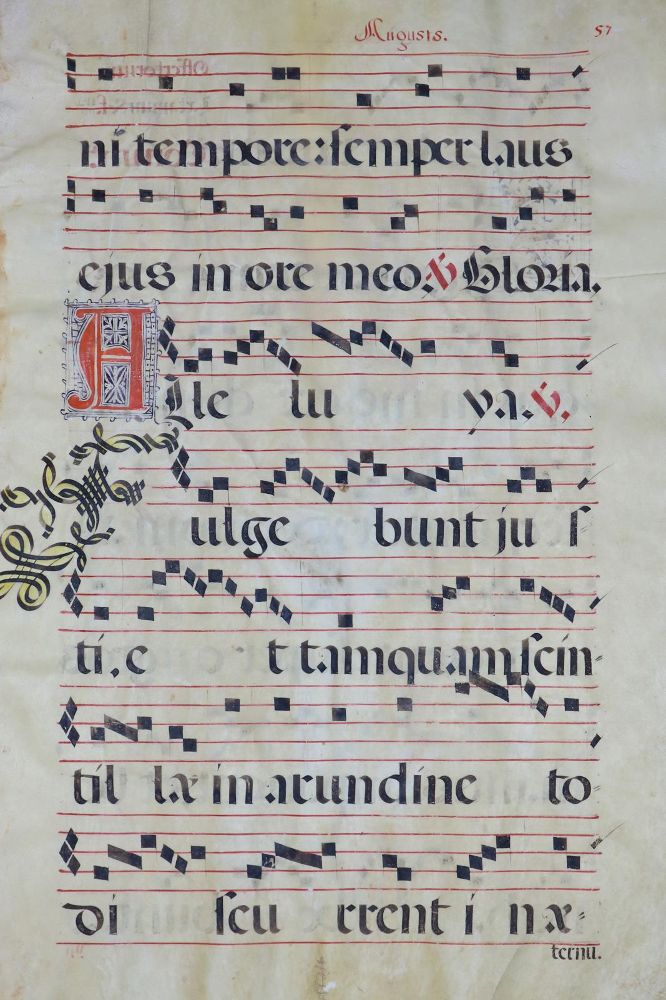 Augusts. 57
ni tempore: semper laus
ejus in ore meo. ℣ Gloria.
Alle lu ya. ℣.
ulge bunt ju s
ti, e t tamquam scin-
til læ in arundine to
di scu rrent i n æ-
ternu.